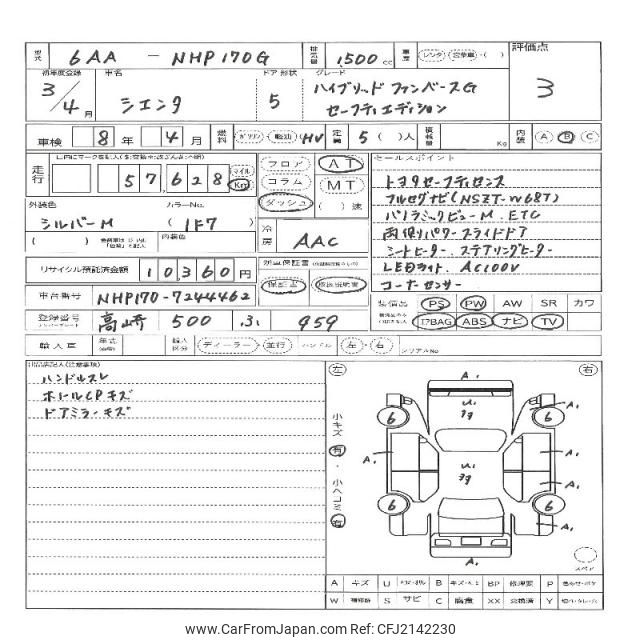 型式 6AA - NHP170G 排気量 1,500 cc 車歴 レンタ・営業車・( ) 評価点
初年度登録 車名 ドア 形状 グレード
3/4月 シエンタ 5 ハイブリッド ファンベースG 3
セーフティエディション
車検 8年 4月 燃料 ガソリン・軽油・(HV) 定員 5( )人 積載量 Kg 内装 A B C
走行 57,628 マイル Km
フロア AT
コラム MT
ダッシュ ( )速
セールスポイント
トヨタセーフティセンス
フルセグナビ(NSZT-W68T)
パノラミックビューM. ETC
両側パワースライドドア
シートヒーター. ステアリングヒーター
LEDライト. AC100V
コーナーセンサー
外装色 カラーNo.
シルバーM (1F7)
内装色
冷房 AAC
リサイクル預託済金額 10,360円
保証書 取扱説明書
車台番号 NHP170-7244462
装備品 PS PW AW SR カワ
AIRBAG ABS ナビ TV
登録番号 高崎 500 ふ 959
ナンバープレート
輸入車 年式 輸入区分 ディーラー・並行 ハンドル 左・右 シリアルNo
出品店記入(注意事項)
ハンドルスレ
ホイールCPキズ
ドアミラーキズ
左 右
小キズ 有・小ヘコミ 有
A.
6 6 A.
A. A.
A.
6 6
A.
A.
スペア
A キズ U B BP 修理要 P
W 補修跡 S サビ C 腐食 XX 交換済 Y
www.CarFromJapan.com - Ref: CFJ2142230